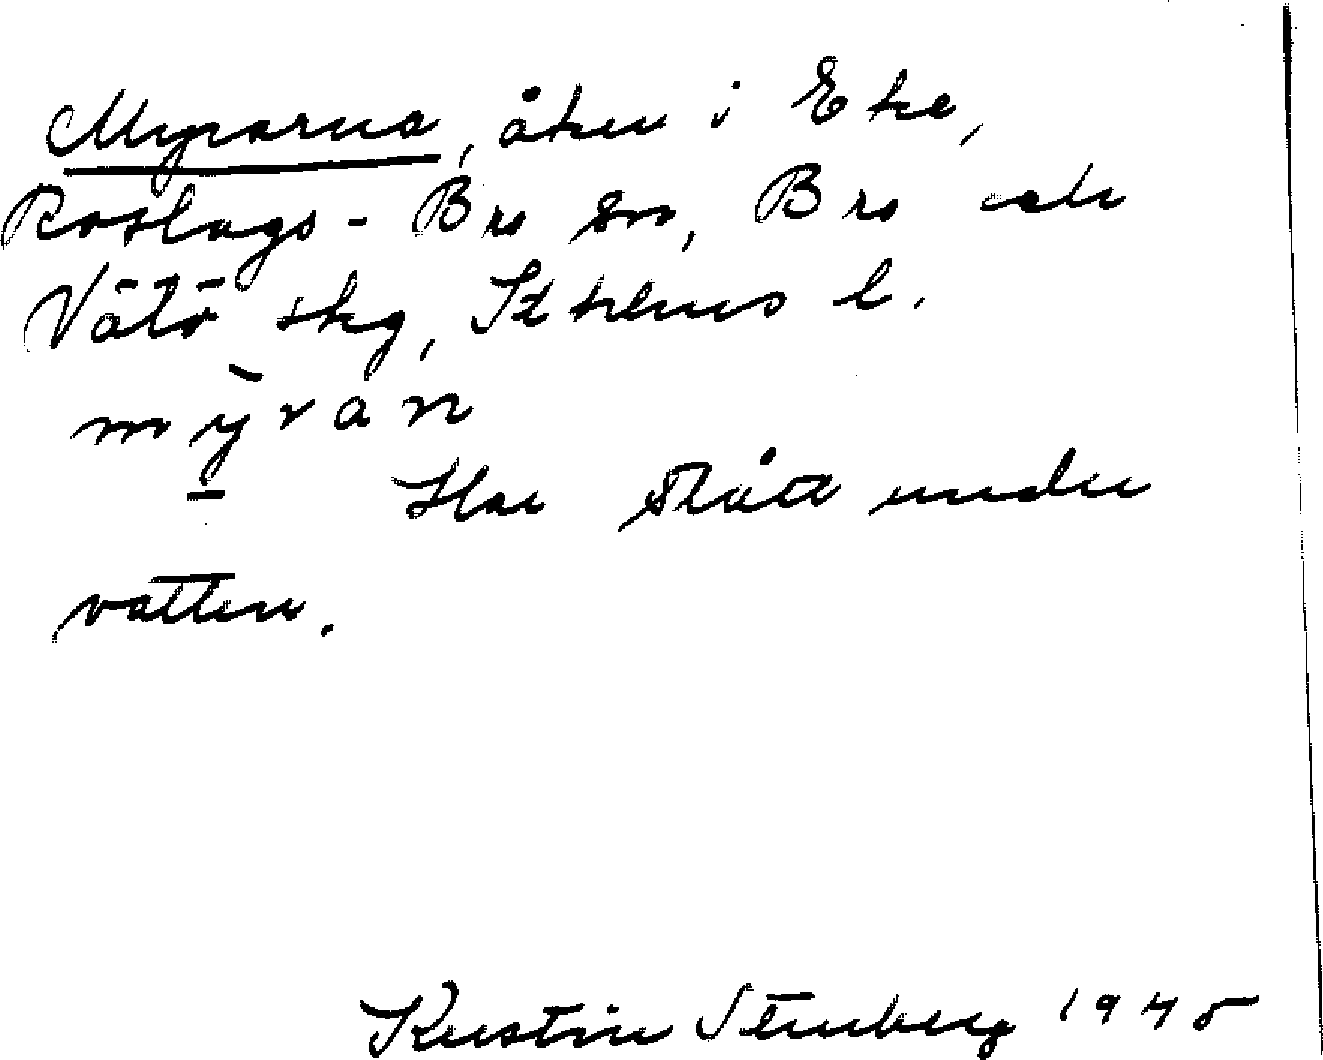 Myrarna, åker i Eke,
Roslags-Bro sn, Bro och
Vätö skg, Stholms l.
mỳran
Har stått under
vatten.
Kerstin Stenberg 1945